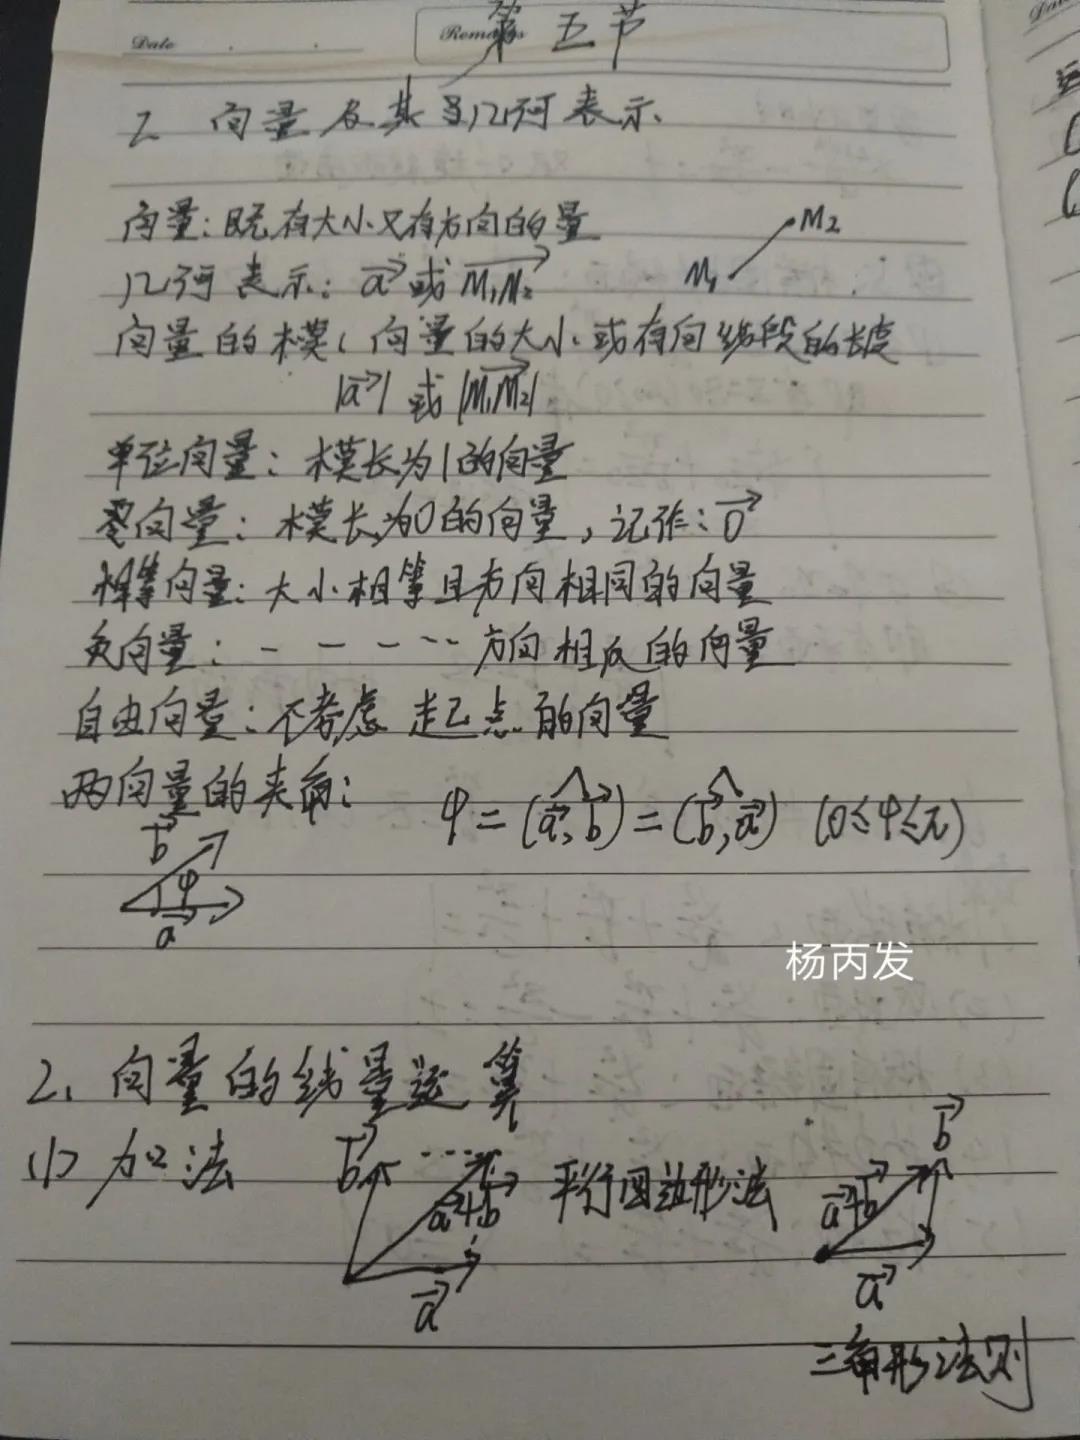 Date
Remarks
第五节
1. 向量及其几何表示
向量：既有大小又有方向的量
几何表示：a⃗ 或 M₁M₂⃗
M₁ M₂
向量的模：向量的大小或有向线段的长度
|a⃗| 或 |M₁M₂⃗|
单位向量：模长为1的向量
零向量：模长为0的向量，记作：0⃗
相等向量：大小相等且方向相同的向量
负向量：- - - - -- 方向相反的向量
自由向量：不考虑起点的向量
两向量的夹角：
φ=(a⃗,b⃗)=(b⃗,a⃗) (0≤φ≤π)
b⃗
φ
a⃗
杨丙发
2、向量的线量运算
(1) 加法
b⃗ a⃗+b⃗ a⃗
平行四边形法
a⃗+b⃗ b⃗ a⃗
三角形法则